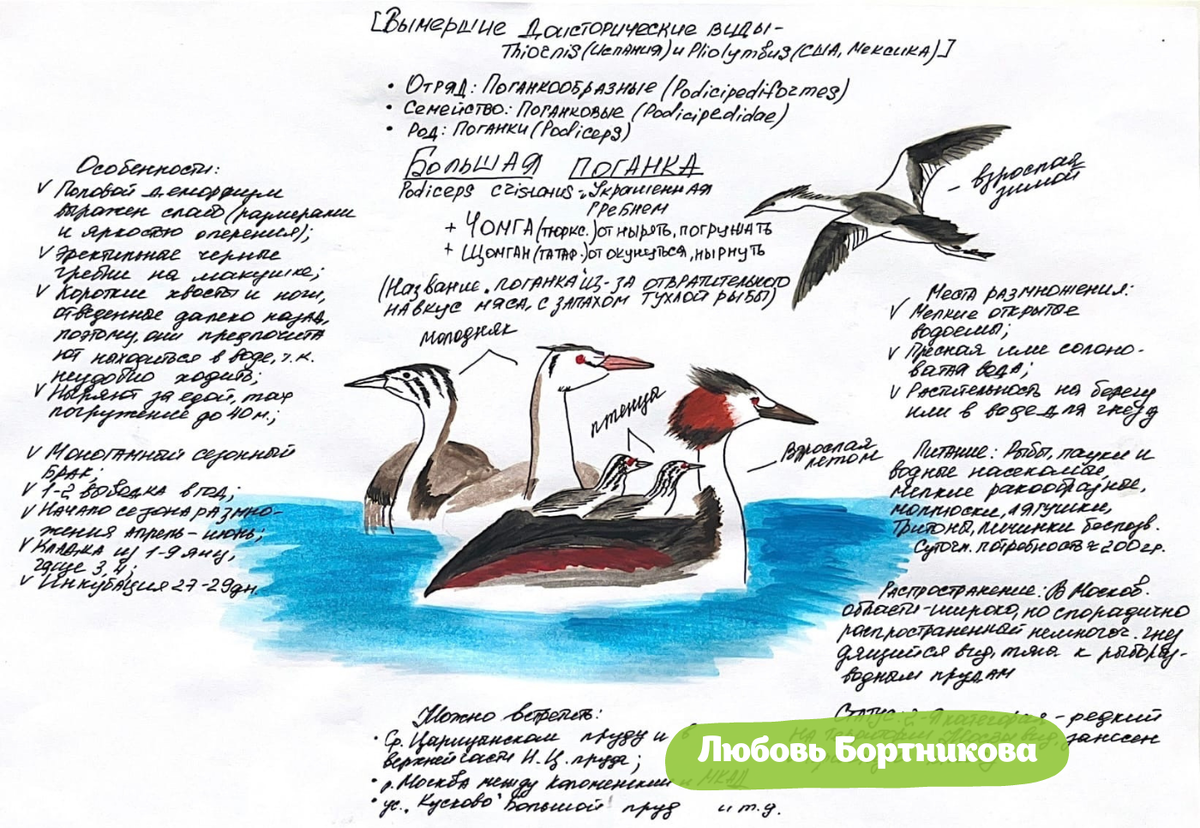 [Вымершие доисторические виды-
Thiornis (Испания) и Pliolymbus (США, Мексика)]
• Отряд: Поганкообразные (Podicipediformes)
• Семейство: Поганковые (Podicipedidae)
• Род: Поганки (Podiceps)
Большая поганка
Podiceps cristanus „Украшенная
гребнем
+ Чомга (тюркс.) от нырять, погружать
+ Щонган (татар.) от окунуться, нырнуть
(Название „поганка" из-за отвратительного
на вкус мяса, с запахом тухлой рыбы)
- взрослая
зимой
Особенности:
✓ Половой диморфизм
выражен слабо (размерами
и яркостью оперения);
✓ Эректильные черные
гребни на макушке;
✓ Короткие хвосты и ноги,
отведенные далеко назад,
поэтому, они предпочита
ют находиться в воде, т.к.
неудобно ходить;
✓ Ныряют за едой, max
погружение до 40 м.;
✓ Моногамный сезонный
брак;
✓ 1-2 выводка в год;
✓ Начало сезона размно-
жения апрель-июнь;
✓ Кладка из 1-9 яиц,
чаще 3, 4;
✓ Инкубация 27-29 дн.
молодняк
птенцы
взрослая
летом
Места размножения:
✓ Мелкие открытые
водоемы;
✓ Пресная или солоно-
ватая вода;
✓ Растительность на берегу
или в воде для гнезд
Питание: Рыбы, пауки и
водные насекомые,
мелкие ракообразные,
моллюски, лягушки,
тритоны, личинки беспозв.
Суточн. потребность ≈ 200 гр.
Распространение: В Москов.
области - широко, но спорадично
распространенный немногоч. гнез
дящийся вид, тяга к рыбораз-
водным прудам
Статус: 2-я категория - редкий
на территории Москвы вид, занесен
Можно встретить:
• Ср. Царицынском пруду и в
верхней части Н. Ц. пруда;
• р. Москва между Коломенским и МКАД
• ус. „Кусково" Большой пруд и т.д.
Любовь Бортникова